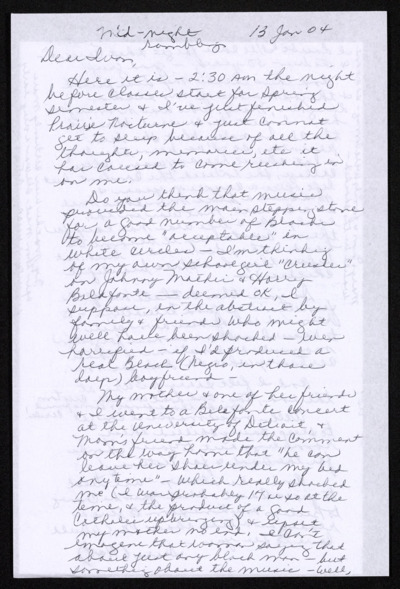 Mid-night 13 Jan 04
rambling
Dear Ivan,
Here it is - 2:30 AM the night
before classes start for Spring
semester & I've just finished
Prairie Nocturne & just cannot
get to sleep because of all the
thoughts, memories, etc it
has caused to come rushing in
on me.
Do you think that music
provided the main stepping stone
for a good number of Blacks
to become "acceptable" in
white circles - I'm thinking
of my own schoolgirl "crushes"
on Johnny Mathis & Harry
Belafonte — deemed OK, I
suppose, in the abstract by
family & friends who might
well have been shocked - even
horrified - if I'd produced a
real Black (Negro, in those
days) boyfriend.
My mother & one of her friends
& I went to a Belafonte concert
at the University of Detroit, &
Mom's friend made the comment
on the way home that "he can
leave his shoes under my bed
anytime" - which really shocked
me (I was probably 17 or so at the
time, & the product of a good
Catholic upbringing) & upset
my mother no end. I can't
imagine that woman saying that
about just any black man - but
something about the music - well,